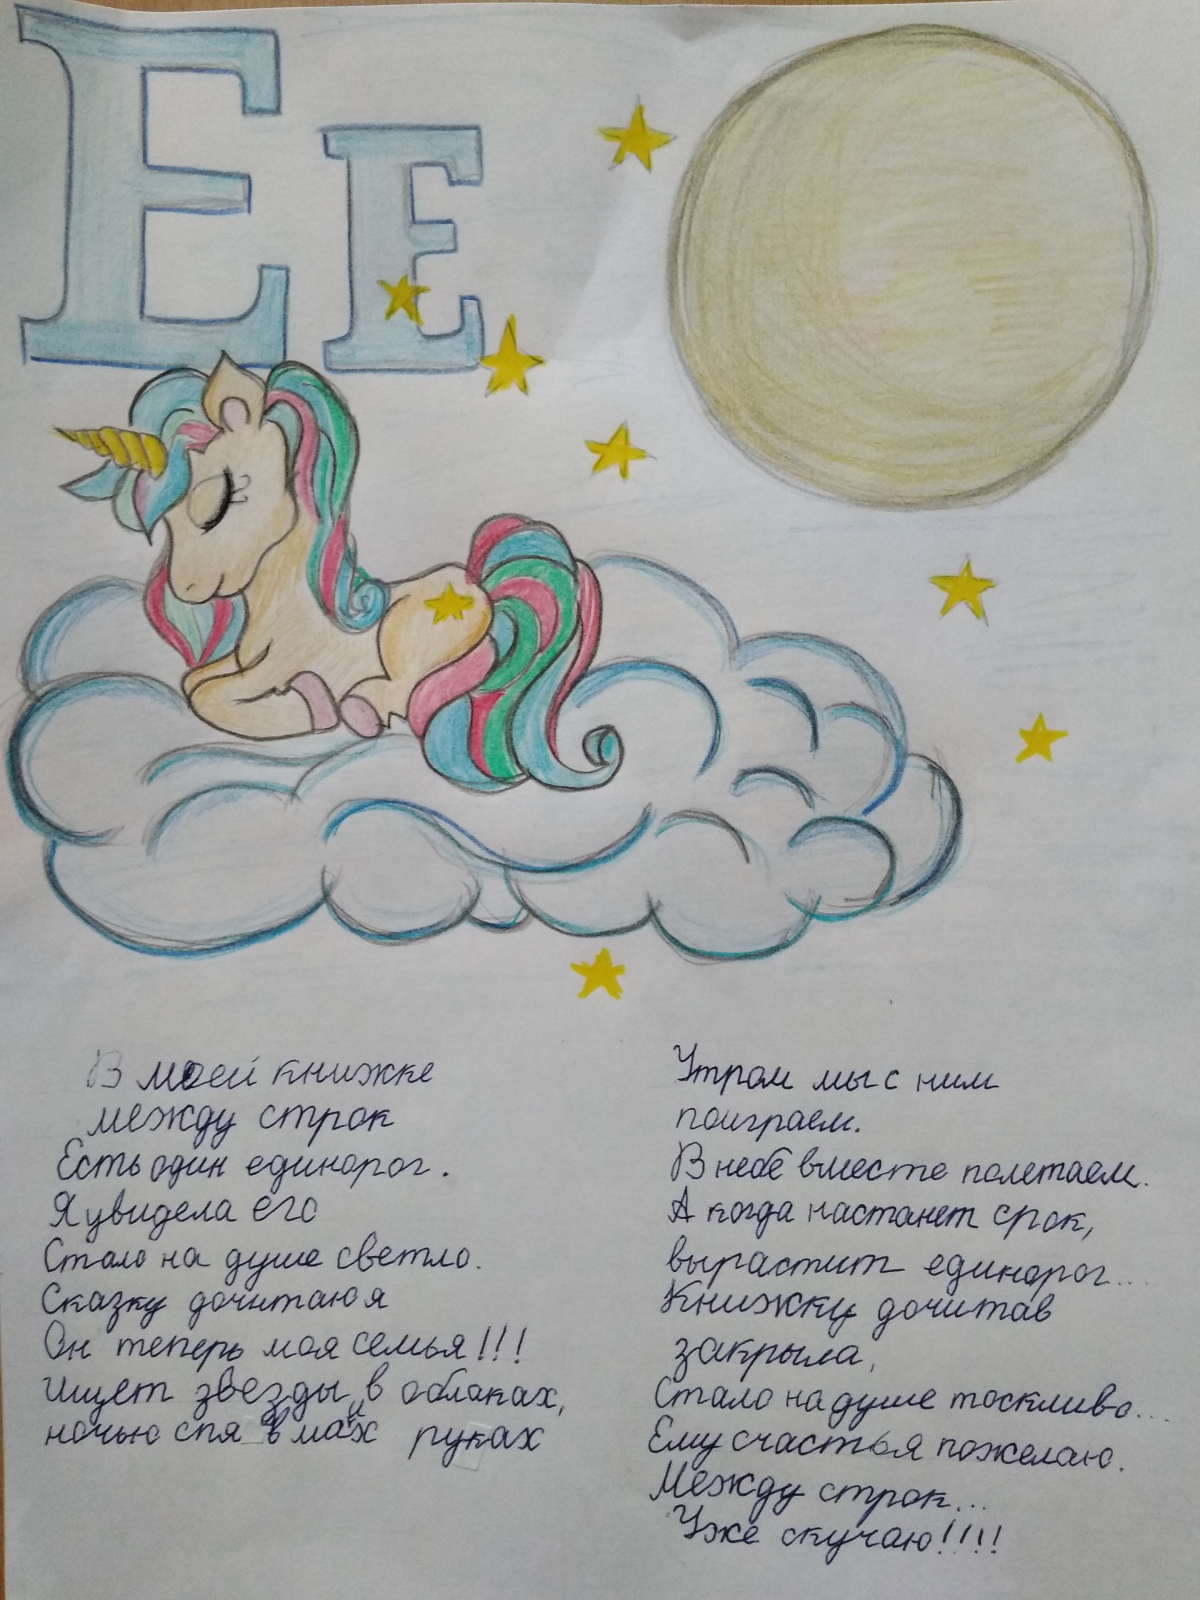 Ее
В моей книжке
между строк
Есть один единорог.
Я увидела его
Стало на душе светло.
Сказку дочитаю я
Он теперь моя семья!!!
Ищет звезды в облаках,
ночью спя в моих руках
Утром мы с ним
поиграем.
В небе вместе полетаем.
А когда настанет срок,
вырастит единорог...
Книжку дочитав
закрыла,
Стало на душе тоскливо...
Ему счастья пожелаю.
Между строк...
Уже скучаю!!!!